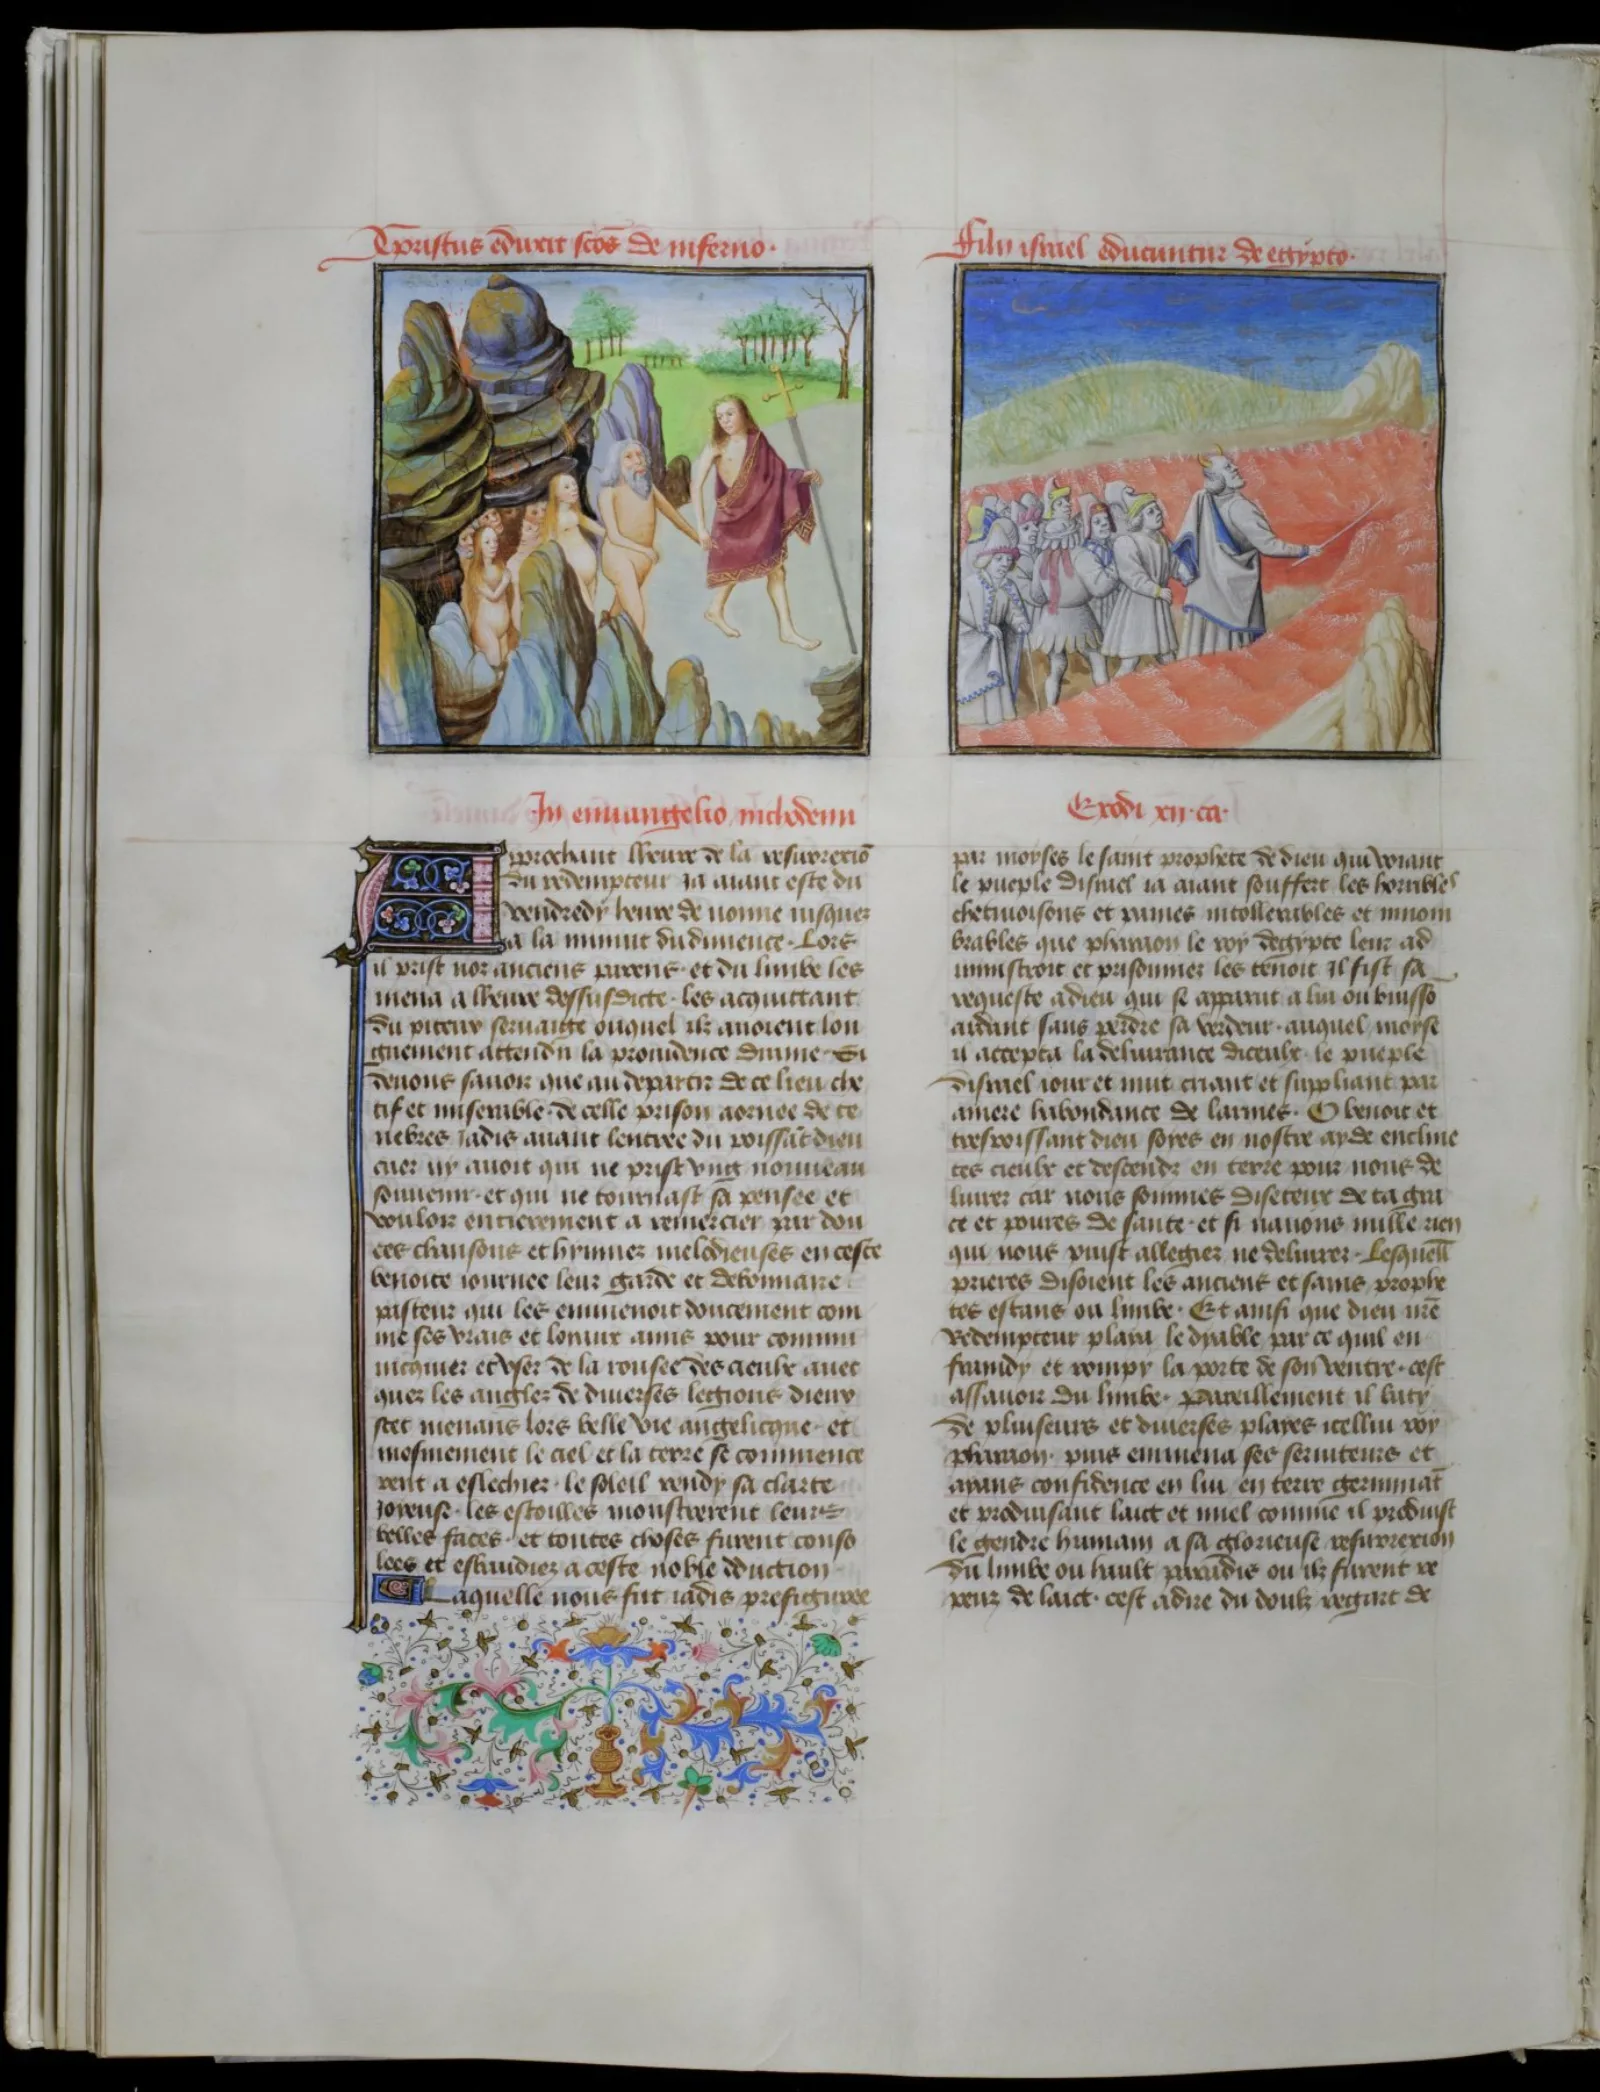 Cpristus eduxit scōs de inferno.
In euuangelio nichodemi
Approchant lheure de la resurrexciō
du redempteur Ja aiant este du
vendredy heure de nonne iusquez
a la minuit du dimence. Lors
il prist noz anciens parens. et du limbe les
mena a lheure dessusdicte. les acquittant
du piteux seruaige ouquel ilz auoient lon
guement attendu la prouidence diuine. Si
deuons sauoir que au departir de ce lieu che
tif et miserable. de celle prison aornee de te
nebres Jadis auant lentree du poissāt dieu
cuer ny auoit qui ne prist vng nouueau
souuenir. et qui ne tournast sa pensee et
vouloir entierement a remercier par dou
ces chansons et hymnez melodieuses en ceste
benoite iournee leur garde et debonnaire
pasteur qui les emmenoit doucement com
me ses vrais et loyaux amis pour commu
nicquier et vser de la rousee des cieulx auec
quez les anglez de diuerses legions dieux
stet menans lors belle vie angelicque. et
mesmement le ciel et la terre se commence
rent a eslechier. le soleil rendy sa clarte
Joyeuse. les estoilles monstrerent leurs
belles faces. et toutes choses furent conso
lees et esbaudiez a ceste noble dduction.
Laquelle nous fut iadis prefiguree
Filii israel educuntur de egypto.
Exodi xii. ca.
par moyses le saint prophete de dieu qui voiant
le pueple disrael ia aiant souffert les horribles
chetiuoisons et paines intollerables et innom
brables que pharaon le roy degypte leur ad
ministroit et prisonnier les tenoit Jl fist sa
requeste a dieu qui se apparut a lui ou buisso
ardant sans perdre sa verdeur. auquel moyse
il accepta la deliurance diceulx. le pueple
disrael iour et nuit criant et suppliant par
amere habondance de larmes. O benoit et
trespoissant dieu soyes en nostre ayde encline
tes cieulx et descendz en terre pour nous de
liurer car nous sommes diseteux de ta gra
ce et poures de sante. et si nauons mille rien
qui nous puist allegier ne deliurer. Lesquell
prieres disoient les anciens et sains prophe
tes estans ou limbe. Et ainsi que dieu nrē
Redempteur playa le dyable par ce quil en
fraindy et rompy la porte de son ventre. cest
assauoir du limbe. Pareillement il baty
de pluiseurs et diuerses playes icellui roy
pharaon. puis emmena ses seruiteurs et
ayans confidence en lui en terre germināt
et produisant laict et miel comme il produist
le gendre humain a sa glorieuse resurrexion
du limbe ou hault paradis ou ilz furent re
peuz de laict. cest adire du doulz regart de